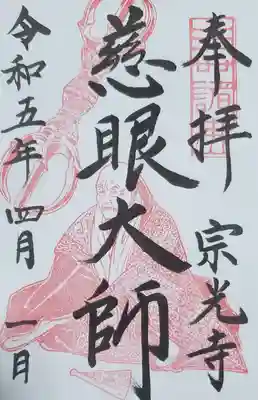 奉拝
宗光寺
慈眼大師
令和五年四月一日